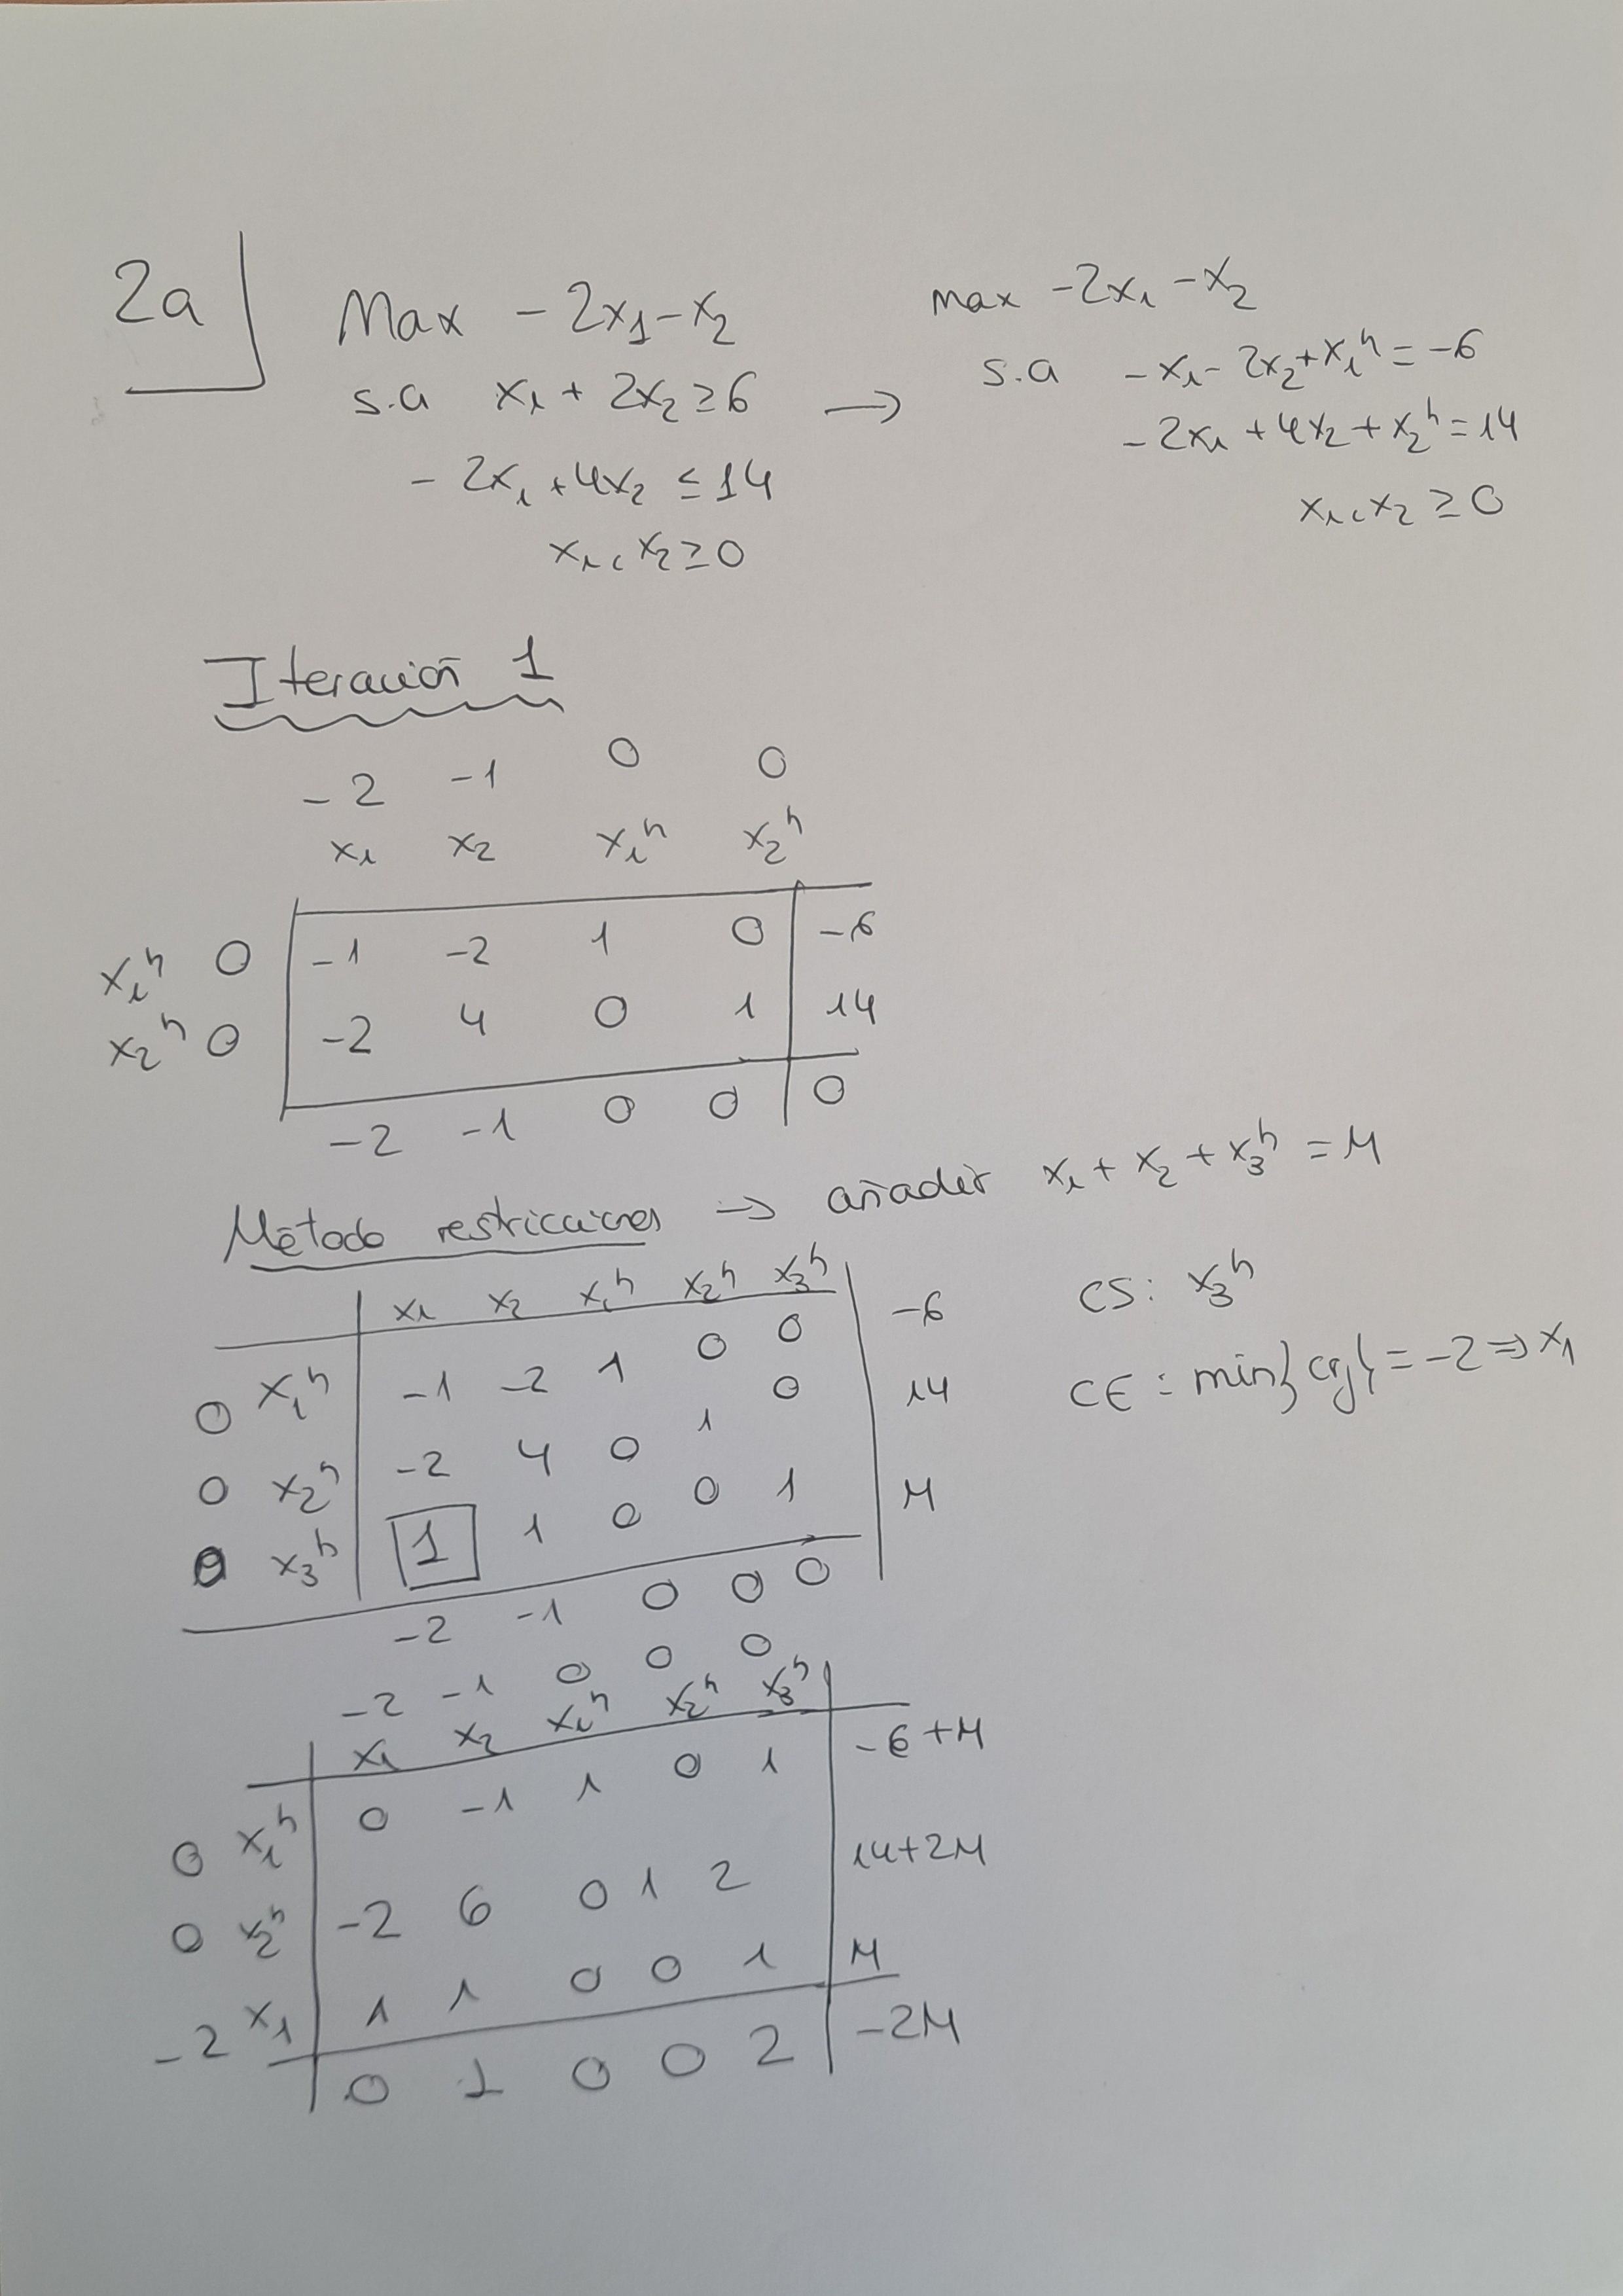 2a
Max -2x₁-x₂
s.a x₁+2x₂≥6 →
-2x₁+4x₂≤14
x₁,x₂≥0
max -2x₁-x₂
s.a -x₁-2x₂+x₁ʰ=-6
-2x₁+4x₂+x₂ʰ=14
x₁,x₂≥0
Iteración 1
-2 -1 0 0
x₁ x₂ x₁ʰ x₂ʰ
x₁ʰ 0 -1 -2 1 0 -6
x₂ʰ 0 -2 4 0 1 14
-2 -1 0 0 0
Método restricciones → añadir x₁+x₂+x₃ʰ=M
x₁ x₂ x₁ʰ x₂ʰ x₃ʰ
0 x₁ʰ -1 -2 1 0 0 -6
0 x₂ʰ -2 4 0 1 0 14
0 x₃ʰ 1 1 0 0 1 M
-2 -1 0 0 0
CS: x₃ʰ
CE: min{crj}=-2⇒x₁
-2 -1 0 0 0
x₁ x₂ x₁ʰ x₂ʰ x₃ʰ
0 x₁ʰ 0 -1 1 0 1 -6+M
0 x₂ʰ -2 6 0 1 2 14+2M
-2 x₁ 1 1 0 0 1 M
0 1 0 0 2 -2M